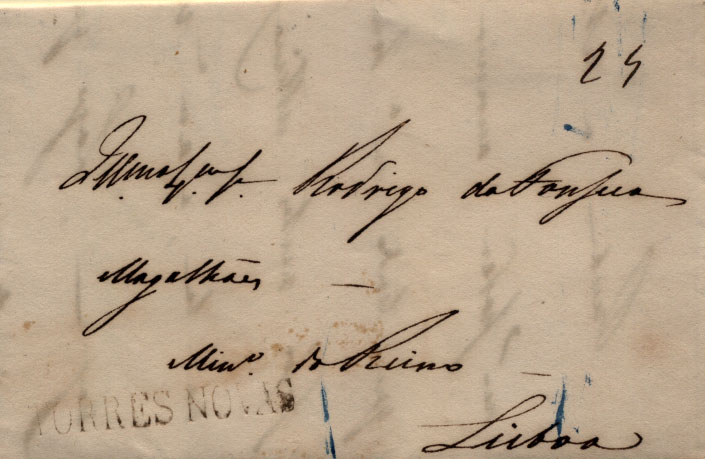 25
Illmo Exmo Sr. Rodrigo da Fonseca
Magalhães —
Mino. do Reino —
TORRES NOVAS
Lisboa